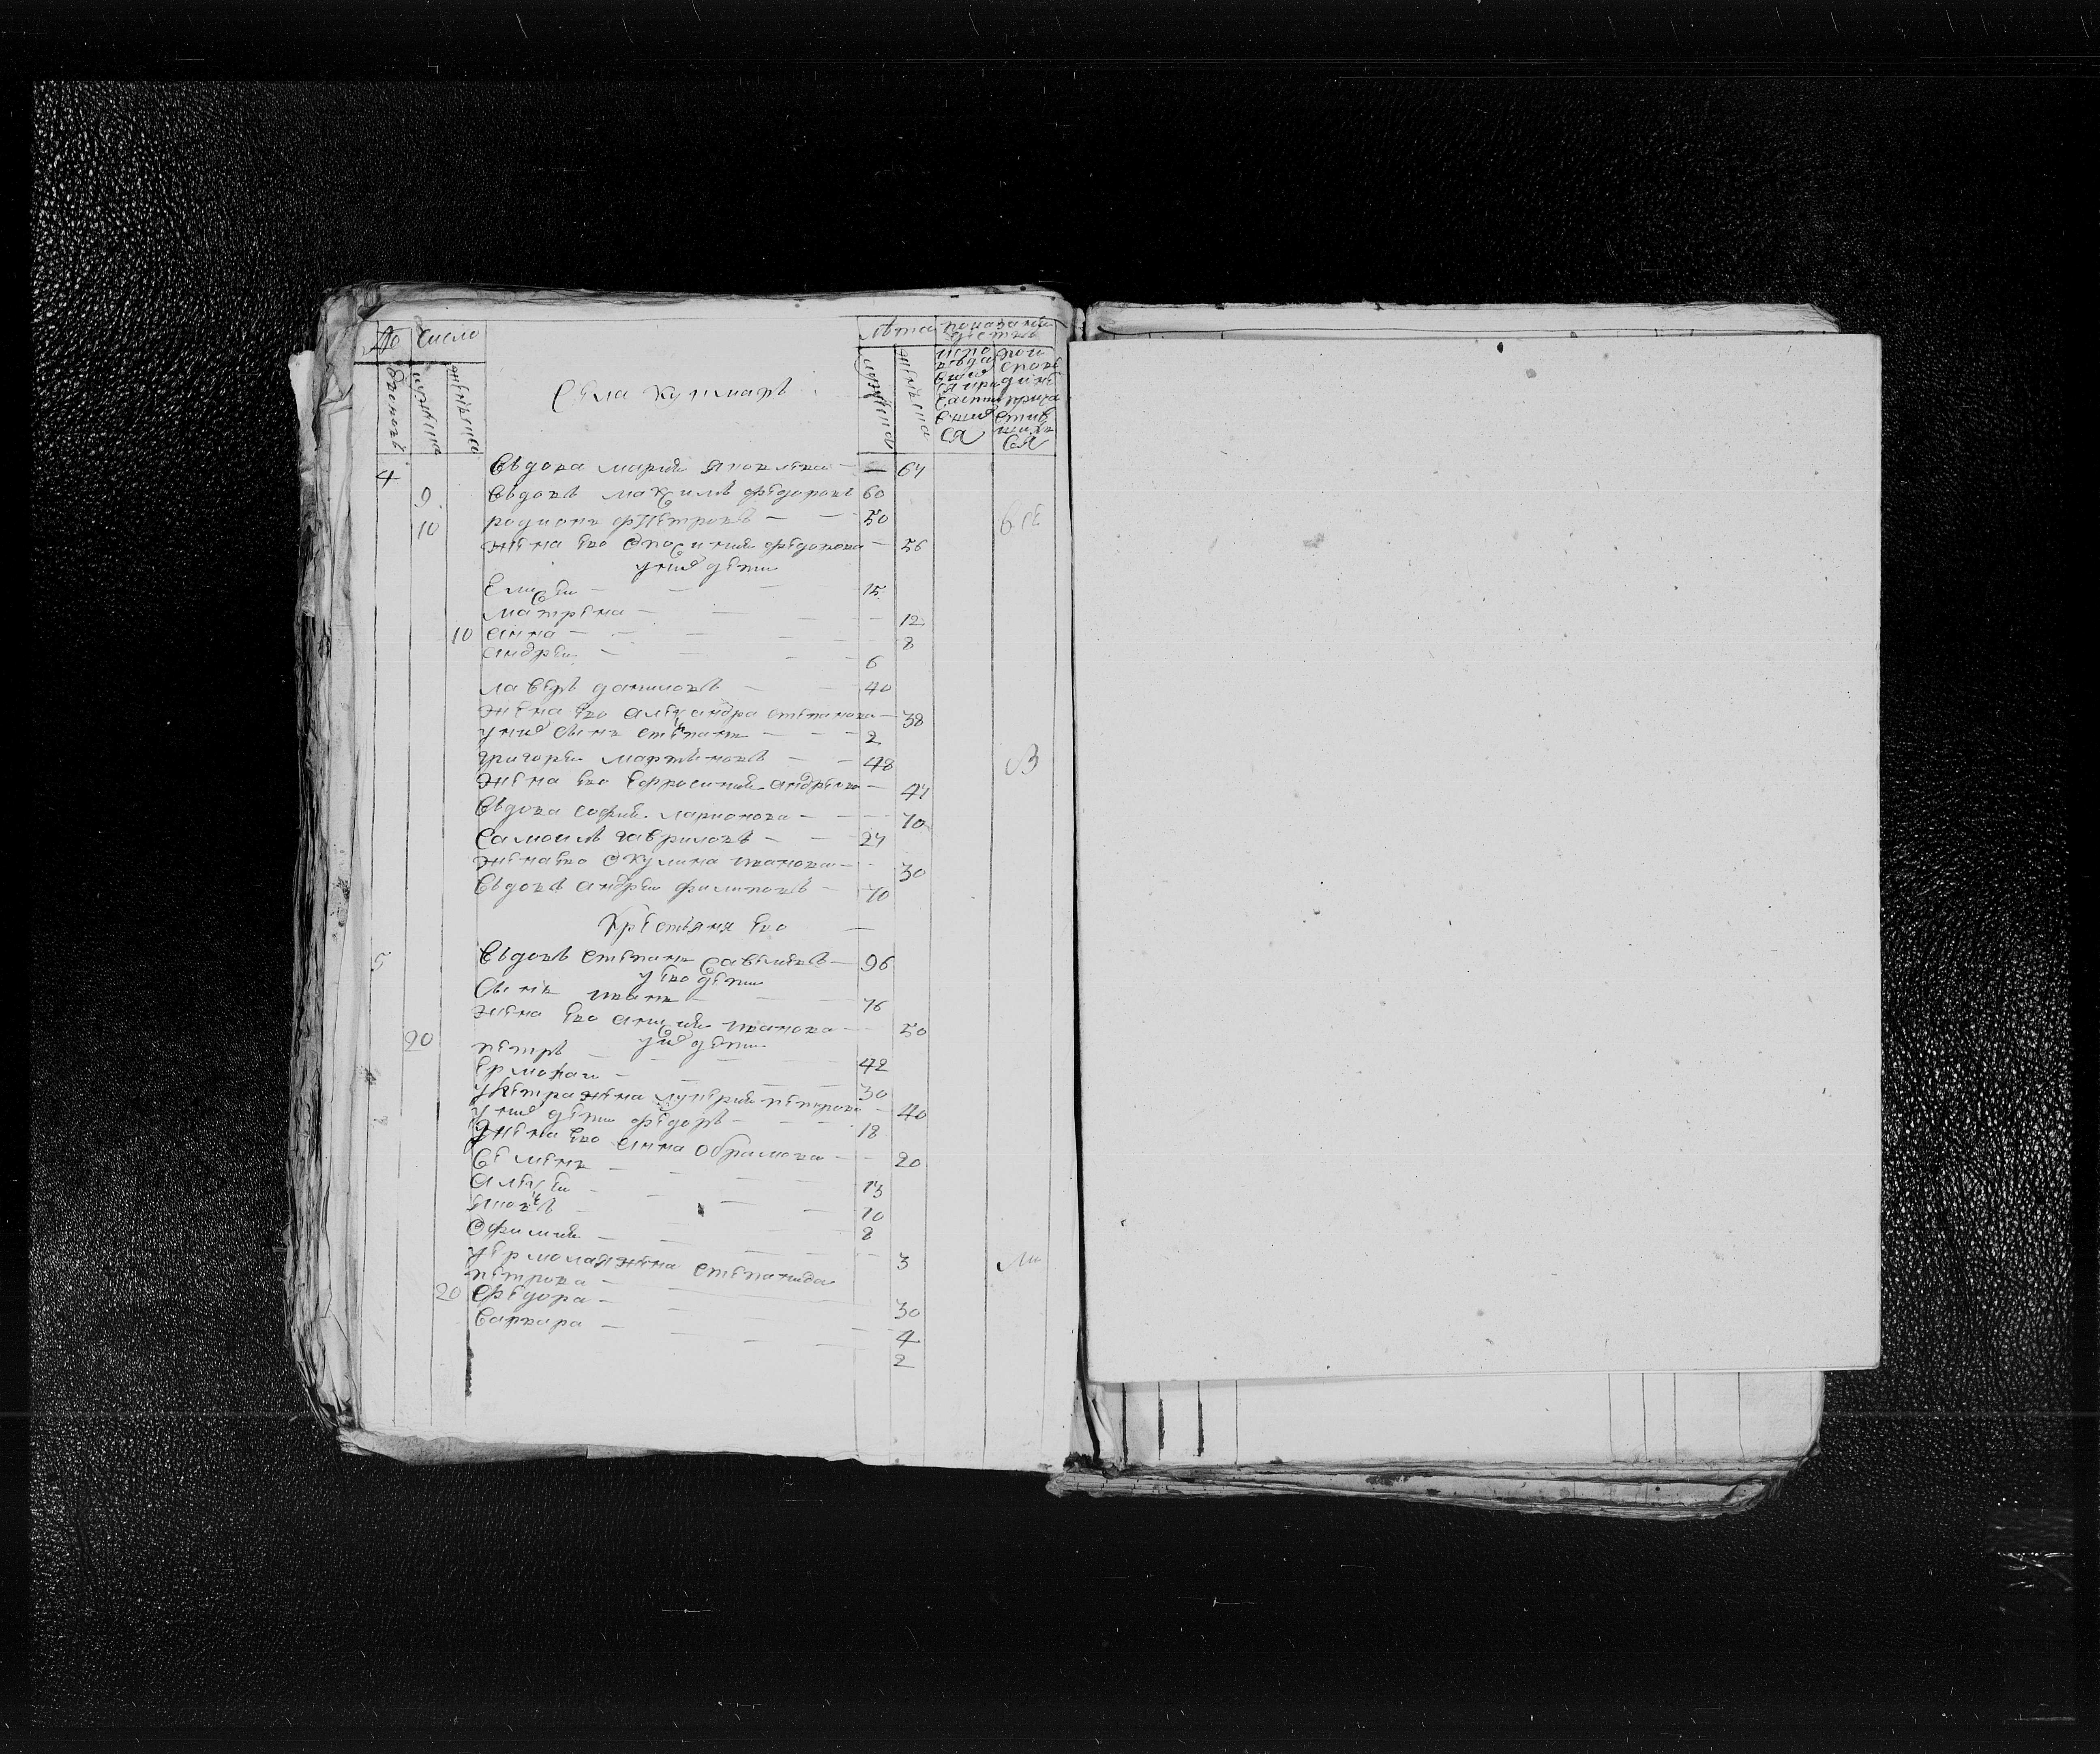 № Число Лѣта показаніе
дѣйства
дворовъ мужеска женска мужеска женска
Села Кушмаръ
4 Вдова марія яковлева — — 64
9 Вдовъ максимъ федоровъ 60
10 родионъ петровъ — — 50
жена ево федорова — 56
у них дети
Елисеи — — 15
матрена — — 12
10 анна — — 8
андреи — — 6
лаверъ даниловъ — — 40
жена ево александра степанова — 38
у них сынъ степанъ — — 2
григореи мартыновъ — — 48
жена ево ефросиния андреева — 44
Вдова софия ларионова — — 70
Самоилъ гавриловъ — — 24
жена ево окулина иванова — 30
Вдовъ андреи филиповъ — 70
Крестьяня ево —
5 Вдовъ степанъ савельевъ — 96
у ево дети
сынъ иванъ — — 76
жена ево иванова — 50
у них дети
20 петръ — — 42
Ермолаи — — 30
у петра жена лукерия петрова — 40
у них дети федоръ — — 18
жена ево анна обрамова — 20
Семенъ — — 13
алексеи — — 10
яковъ — — 8
офимия — — 3
у ермолая жена степанида
петрова — — 30
20 федора — — 4
Варвара — — 2